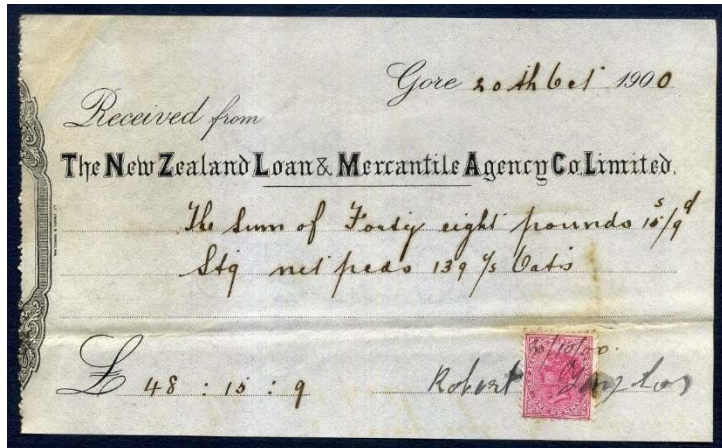 Gore 20th Oct 1900
Received from
The New Zealand Loan & Mercantile Agency Co. Limited.
The Sum of Forty eight pounds 15s/9d
Stg net 139 Oats
£ 48 : 15 : 9
Robert